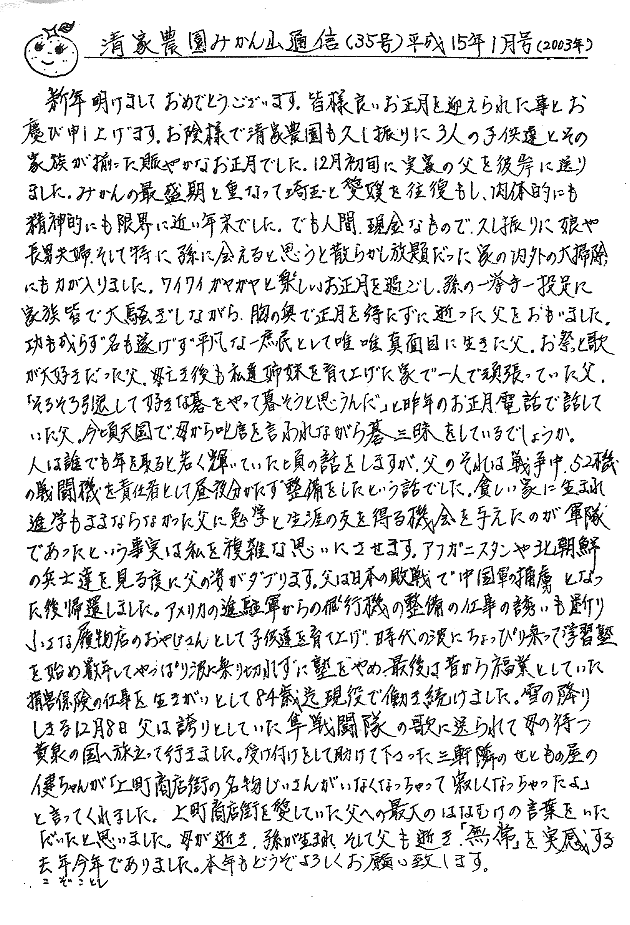 清家農園みかん山通信(35号)平成15年1月号(2003年)
新年明けましておめでとうございます。皆様良いお正月を迎えられた事とお
慶び申し上げます。お陰様で清家農園も久し振りに3人の子供達とその
家族が揃った賑やかなお正月でした。12月初旬に実家の父を彼岸に送り
ました。みかんの最盛期と重なって埼玉と愛媛を往復もし、肉体的にも
精神的にも限界に近い年末でした。でも人間、現金なもので、久し振りに娘や
長男夫婦、そして特に孫に会えると思うと散らかし放題だった家の内外の大掃除
にも力が入りました。ワイワイガヤガヤと楽しいお正月を過ごし、孫の一挙手一投足に
家族皆で大騒ぎしながら、胸の奥で正月を待たずに逝った父をおもいました。
功も成らず名も遂げず平凡な一庶民として唯唯真面目に生きた父。お祭と歌
が大好きだった父。母亡き後も私達姉妹を育て上げた家で一人で頑張っていた父。
「そろそろ引退して好きな碁をやって暮そうと思うんだ」と昨年のお正月、電話で話して
いた父。今頃天国で母から叱言を言われながら碁三昧をしているでしょうか。
人は誰でも年を取ると若く輝いていた頃の話をしますが、父のそれは戦争中、52機
の戦闘機を責任者として昼夜分かたず整備をしたという話でした。貧しい家に生まれ
進学もままならなかった父に勉学と生涯の友を得る機会を与えたのが軍隊
であったという事実は私を複雑な思いにさせます。アフガニスタンや北朝鮮
の兵士達を見る度に父の姿がダブります。父は日本の敗戦で中国軍の捕虜となっ
た後帰還しました。アメリカの進駐軍からの飛行機の整備の仕事の誘いも断り
小さな履物店のおやじさんとして子供達を育て上げ、時代の波にちょっぴり乗って学習塾
を始め数年してやっぱり波に乗り切れずに塾をやめ、最後は昔から福業としていた
損害保険の仕事を生きがいとして84歳迄現役で働き続けました。雪の降り
しきる12月8日父は誇りとしていた隼戦闘隊の歌に送られて母の待つ
黄泉の国へ旅立って行きました。受け付けをして助けて下さった三軒隣のせともの屋の
健ちゃんが「上町商店街の名物じいさんがいなくなっちゃって寂しくなっちゃったよ」
と言ってくれました。上町商店街を愛していた父への最大のはなむけの言葉をいた
だいたと思いました。母が逝き、孫が生まれ、そして父も逝き、「無常」を実感する
去年今年でありました。本年もどうぞよろしくお願い致します。
こぞことし